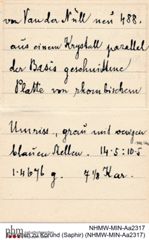 von Van der Nüll neü 488.
aus einem Krystall parallel
der Basis geschnittene
Platte von rhombischem
Umriss, grau mit wenigen
blauen Stellen. 14·5:10·5
1·4676 g. 7⅛ Kar.
NHMW-MIN-Aa2317
zu Korund (Saphir) (NHMW-MIN-Aa2317)